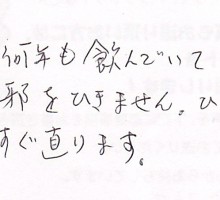 何年も飲んでいて
邪をひきません。ひ
すぐ直ります。